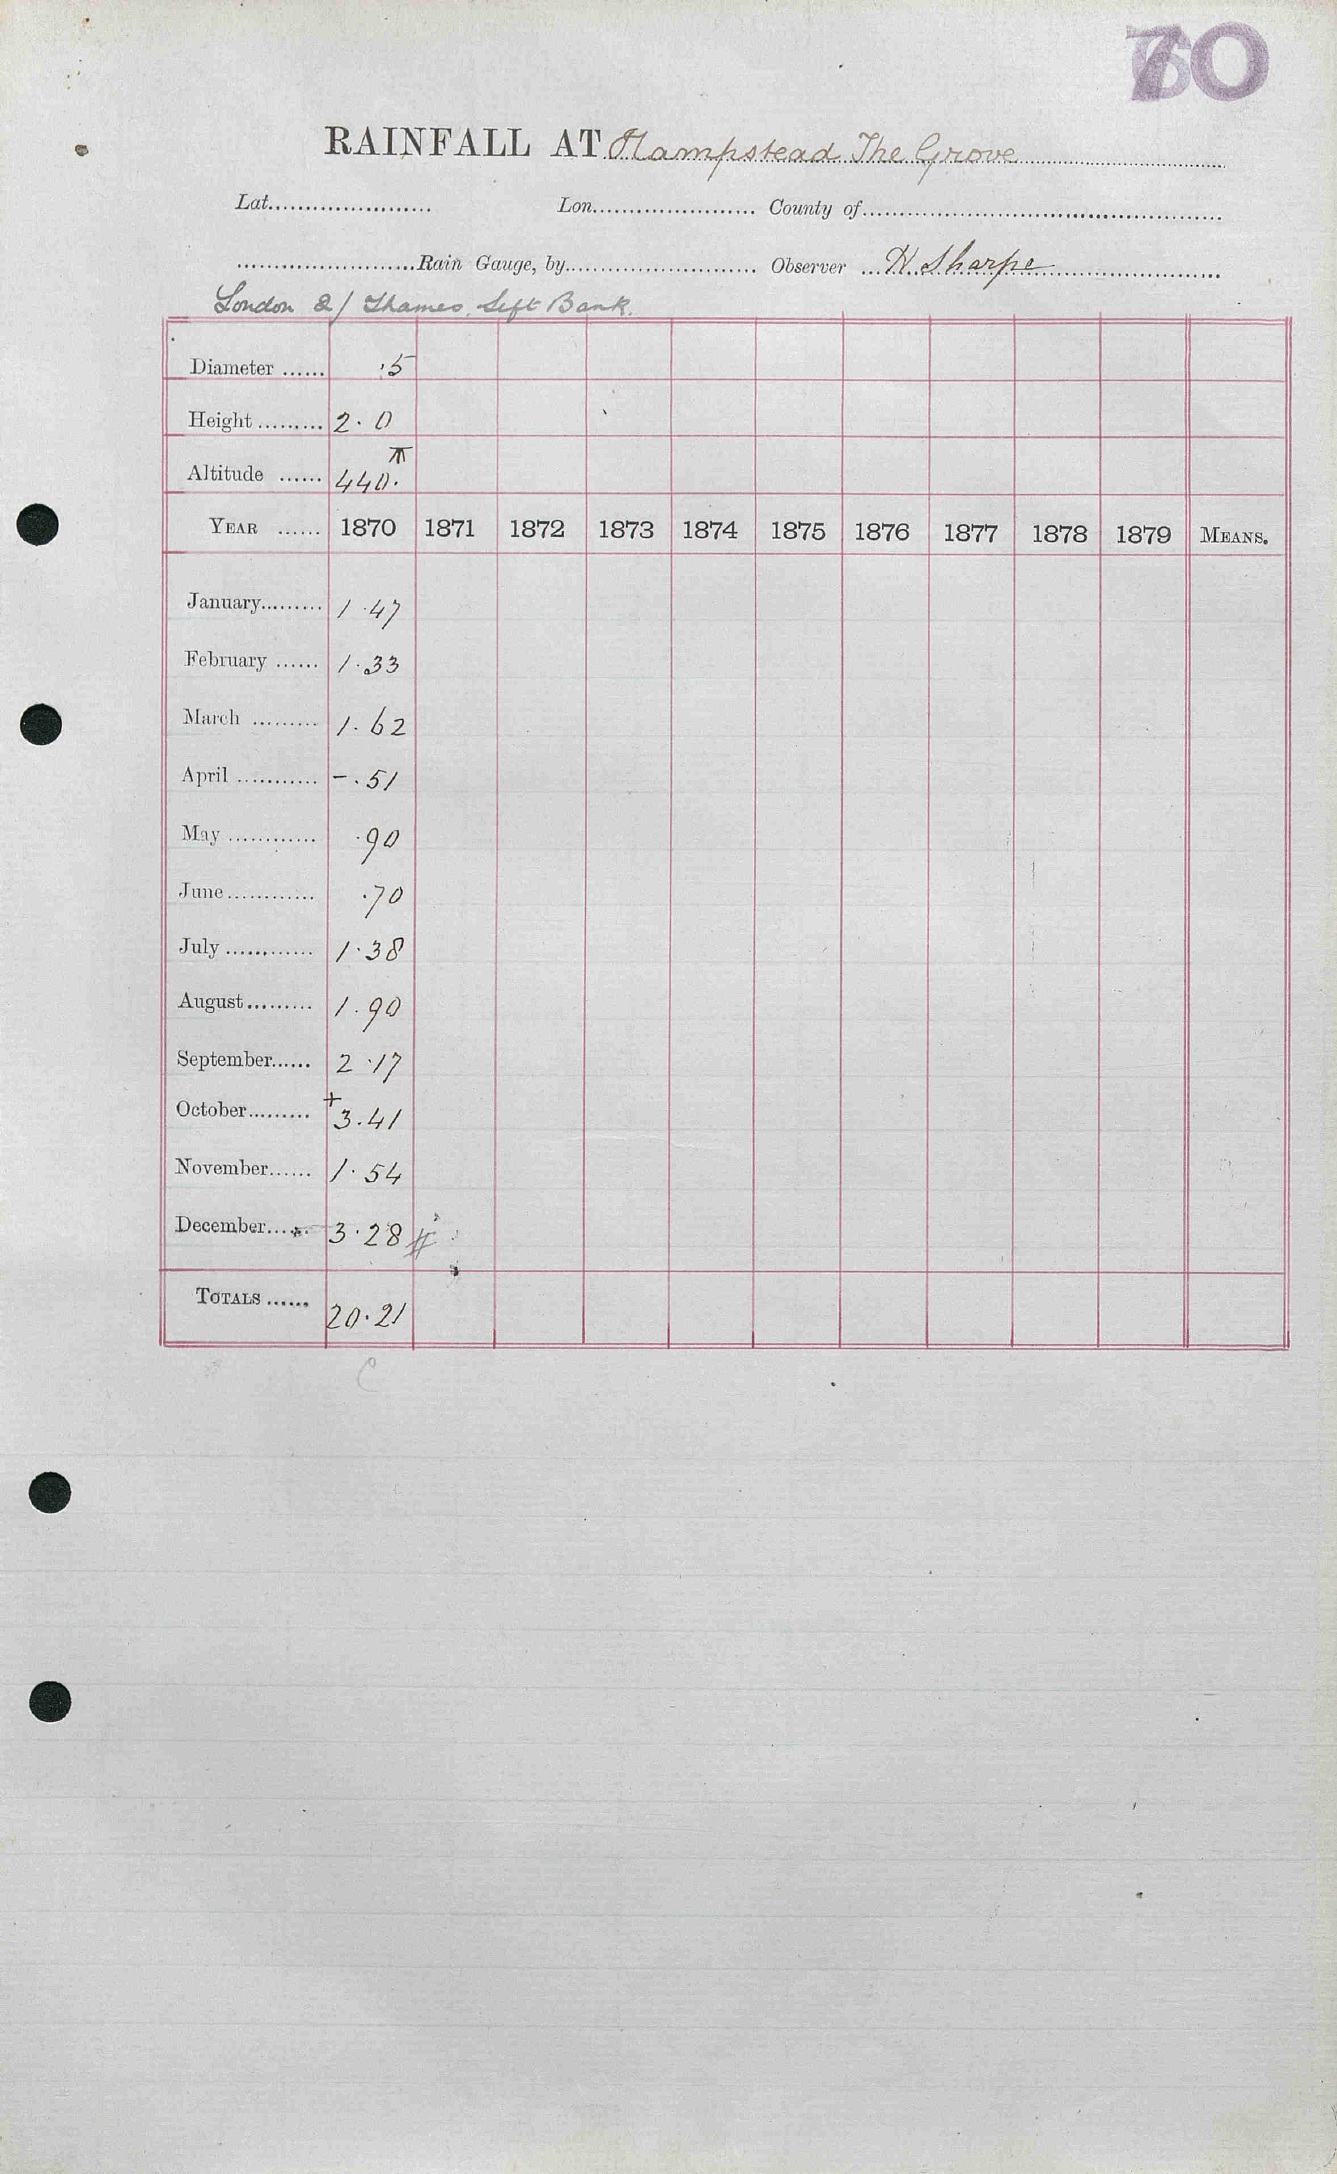 70
RAINFALL AT Hampstead The Grove
Lat...................... Lon...................... County of......................
......................Rain Gauge, by...................... Observer H. Sharpe
London &/ Thames, Left Bank.
Diameter ...... .5
Height ......... 2. 0
Altitude ...... 440. T
YEAR ...... 1870 1871 1872 1873 1874 1875 1876 1877 1878 1879 MEANS.
January......... 1.47
February ...... 1.33
March ......... 1.62
April ........... -.51
May ............ .90
June............ .70
July ............ 1.38
August......... 1.90
September...... 2.17
October......... +3.41
November...... 1.54
December...... 3.28 #
TOTALS ...... 20.21
C